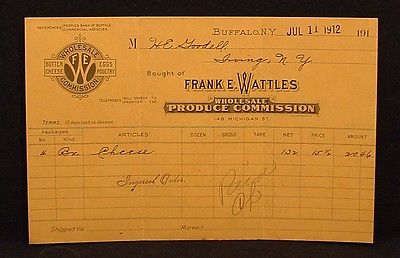 REFERENCES { PEOPLES BANK OF BUFFALO
COMMERCIAL AGENCIES.
BUFFALO, N.Y. JUL 11 1912 191
M H.E. Goodell
Irving, N.Y.
WHOLESALE
BUTTER CHEESE
F E W
EGGS POULTRY
COMMISSION
Bought of
FRANK E. WATTLES
WHOLESALE
PRODUCE COMMISSION
TELEPHONES { BELL SENECA
FRONTIER
148 MICHIGAN ST.
TERMS: 10 days cash no discount.
Packages
No. Kind ARTICLES DOZEN GROSS TARE NET PRICE AMOUNT
4 Bx Cheese 132 15½ 20 46
Ingersol Order.
Shipped Via Mark